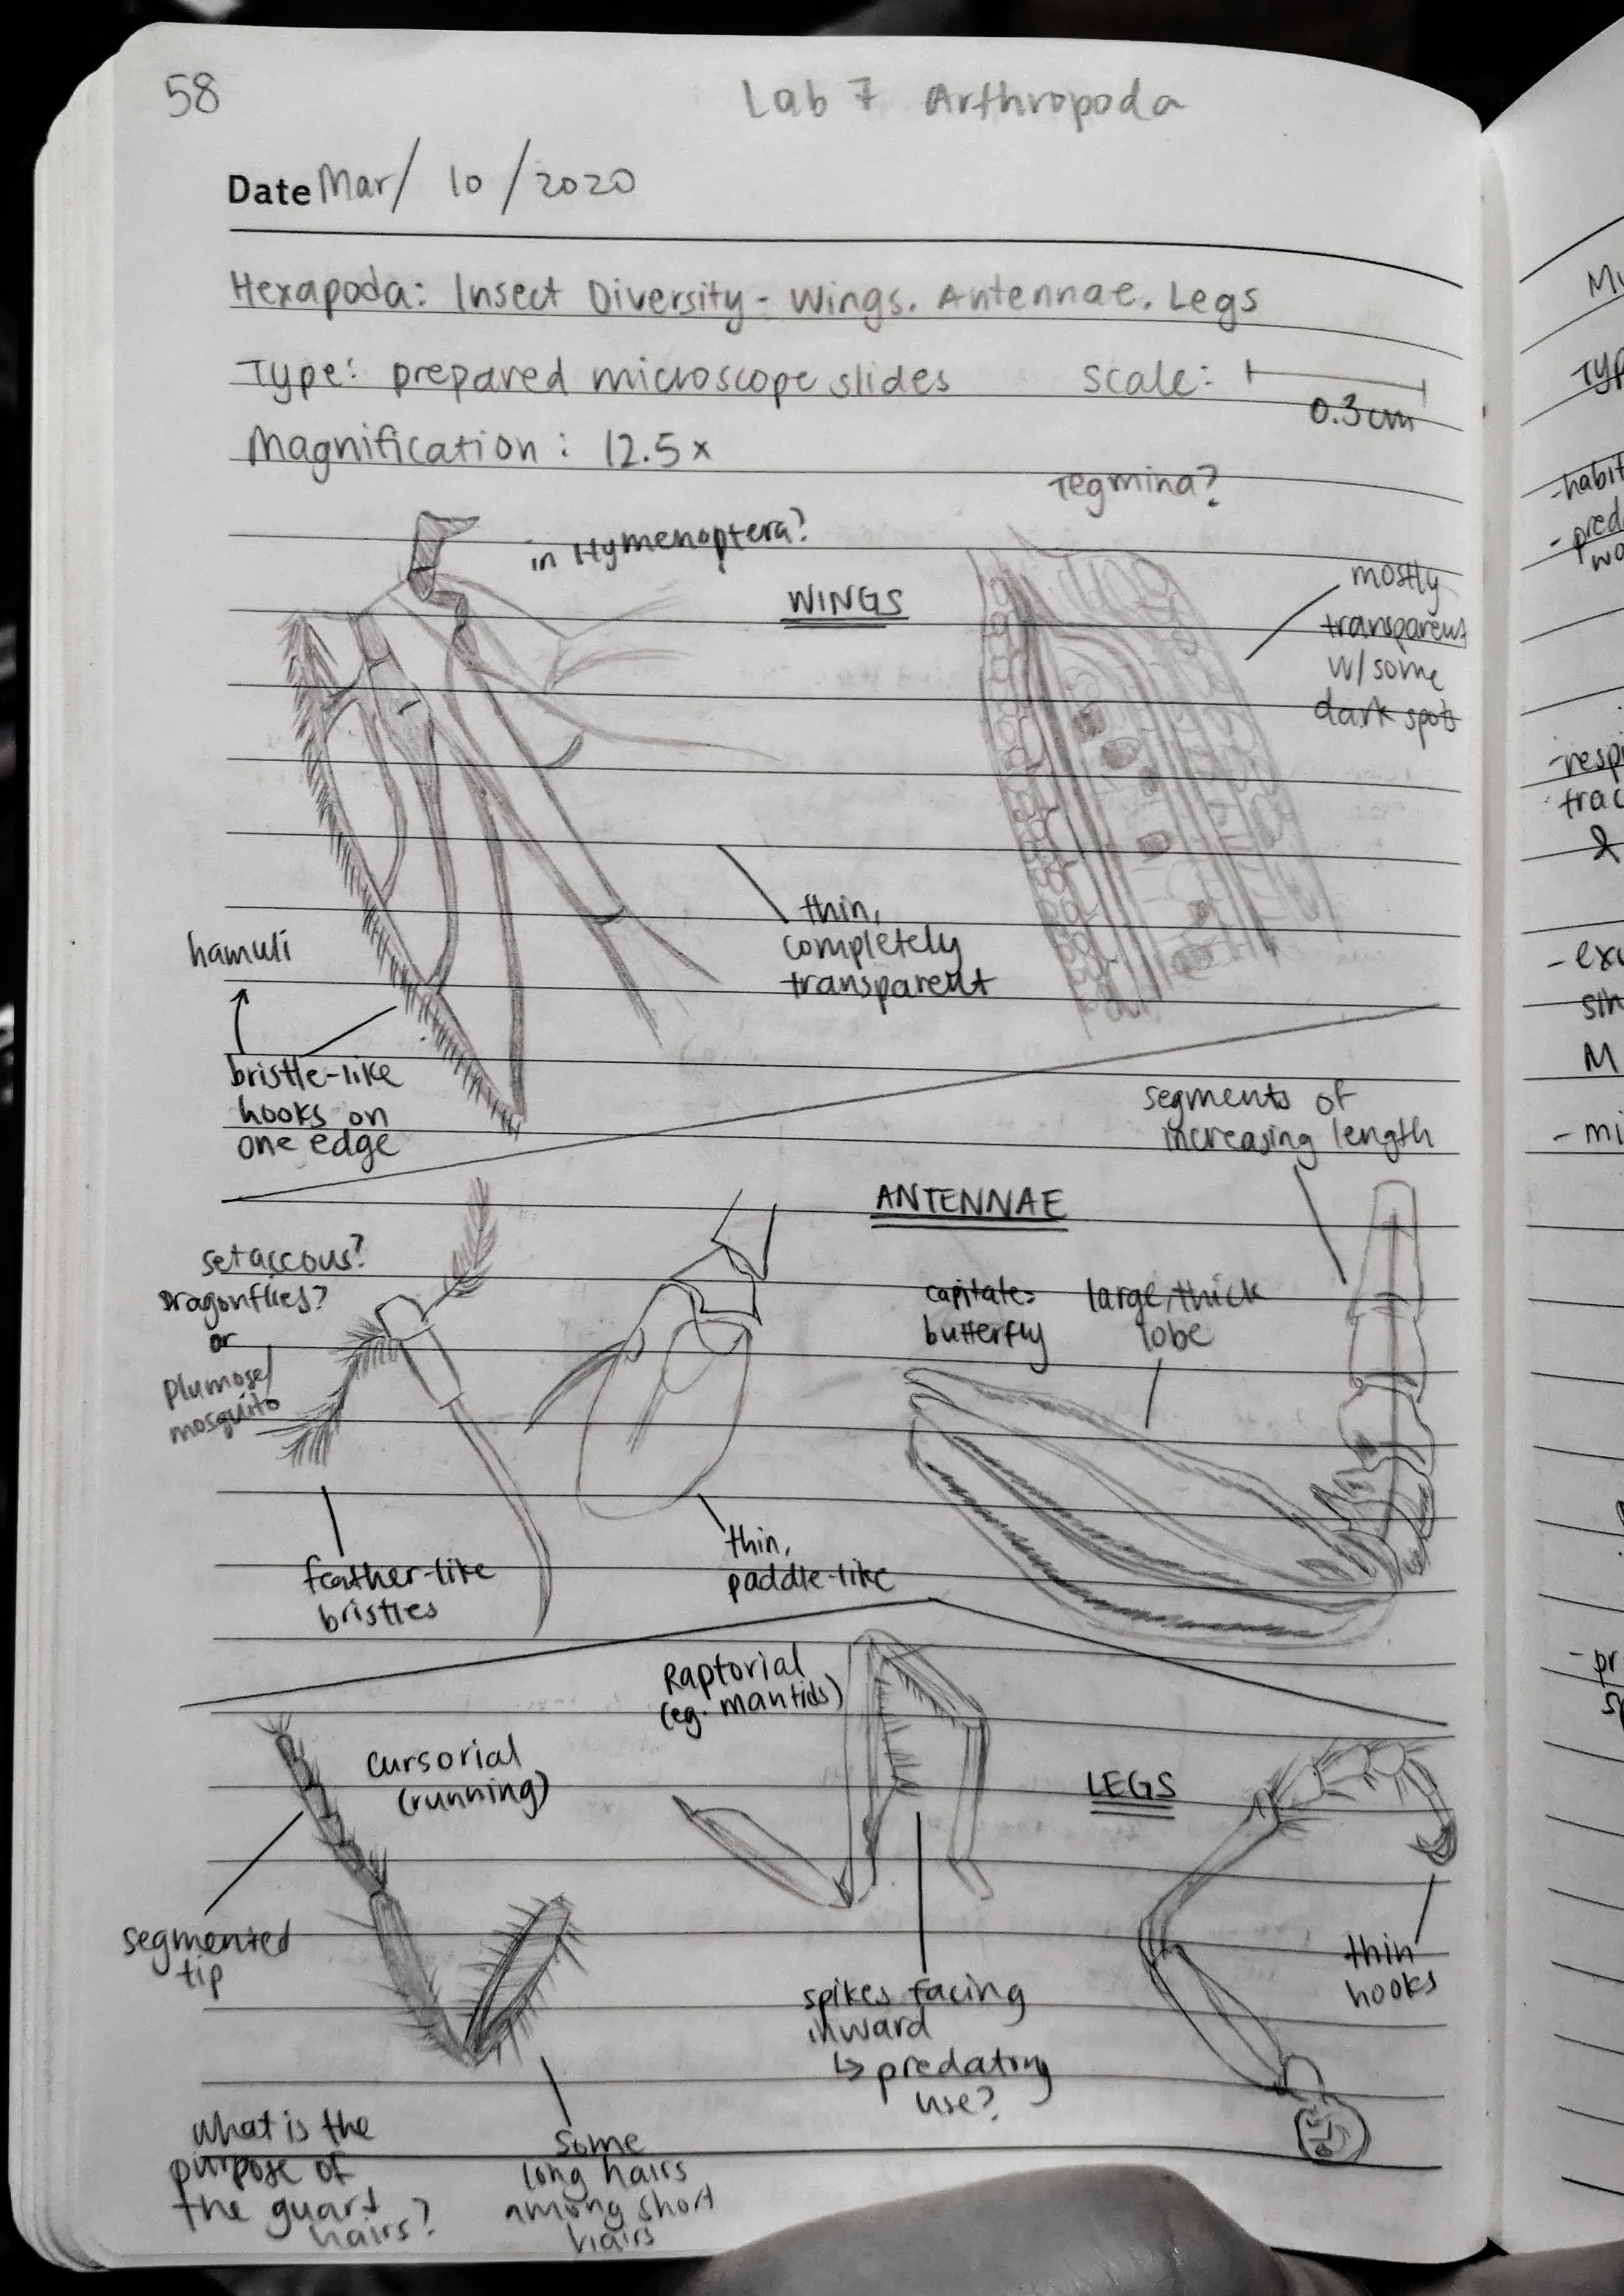 58
Lab 7 Arthropoda
Date Mar/ 10 /2020
Hexapoda: Insect Diversity - Wings. Antennae. Legs
Type: prepared microscope slides
Scale:
0.3cm
Magnification: 12.5x
Tegmina?
in Hymenoptera?
WINGS
mostly
transparent
w/some
dark spots
thin,
completely
transparent
hamuli
bristle-like
hooks on
one edge
segments of
increasing length
ANTENNAE
setaceous?
Dragonflies?
or
Plumose/
mosquito
capitate=
butterfly
large, thick
lobe
feather-like
bristles
thin,
paddle-like
Raptorial
(eg. mantids)
Cursorial
(running)
LEGS
segmented
tip
thin
hooks
spikes facing
inward
↳ predatory
use?
What is the
purpose of
the guard
hairs?
some
long hairs
among short
hairs
-habit
-pred
-resp
trac
&
- M
- mi
- pr
sp